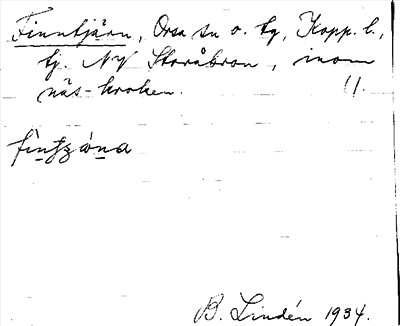 Finntjärn, Orsa sn o. tg, Kopp. l.,
tj. NV Storåbron, inom
näs-kroken. 11.
fìnt
B. Lindén 1934.